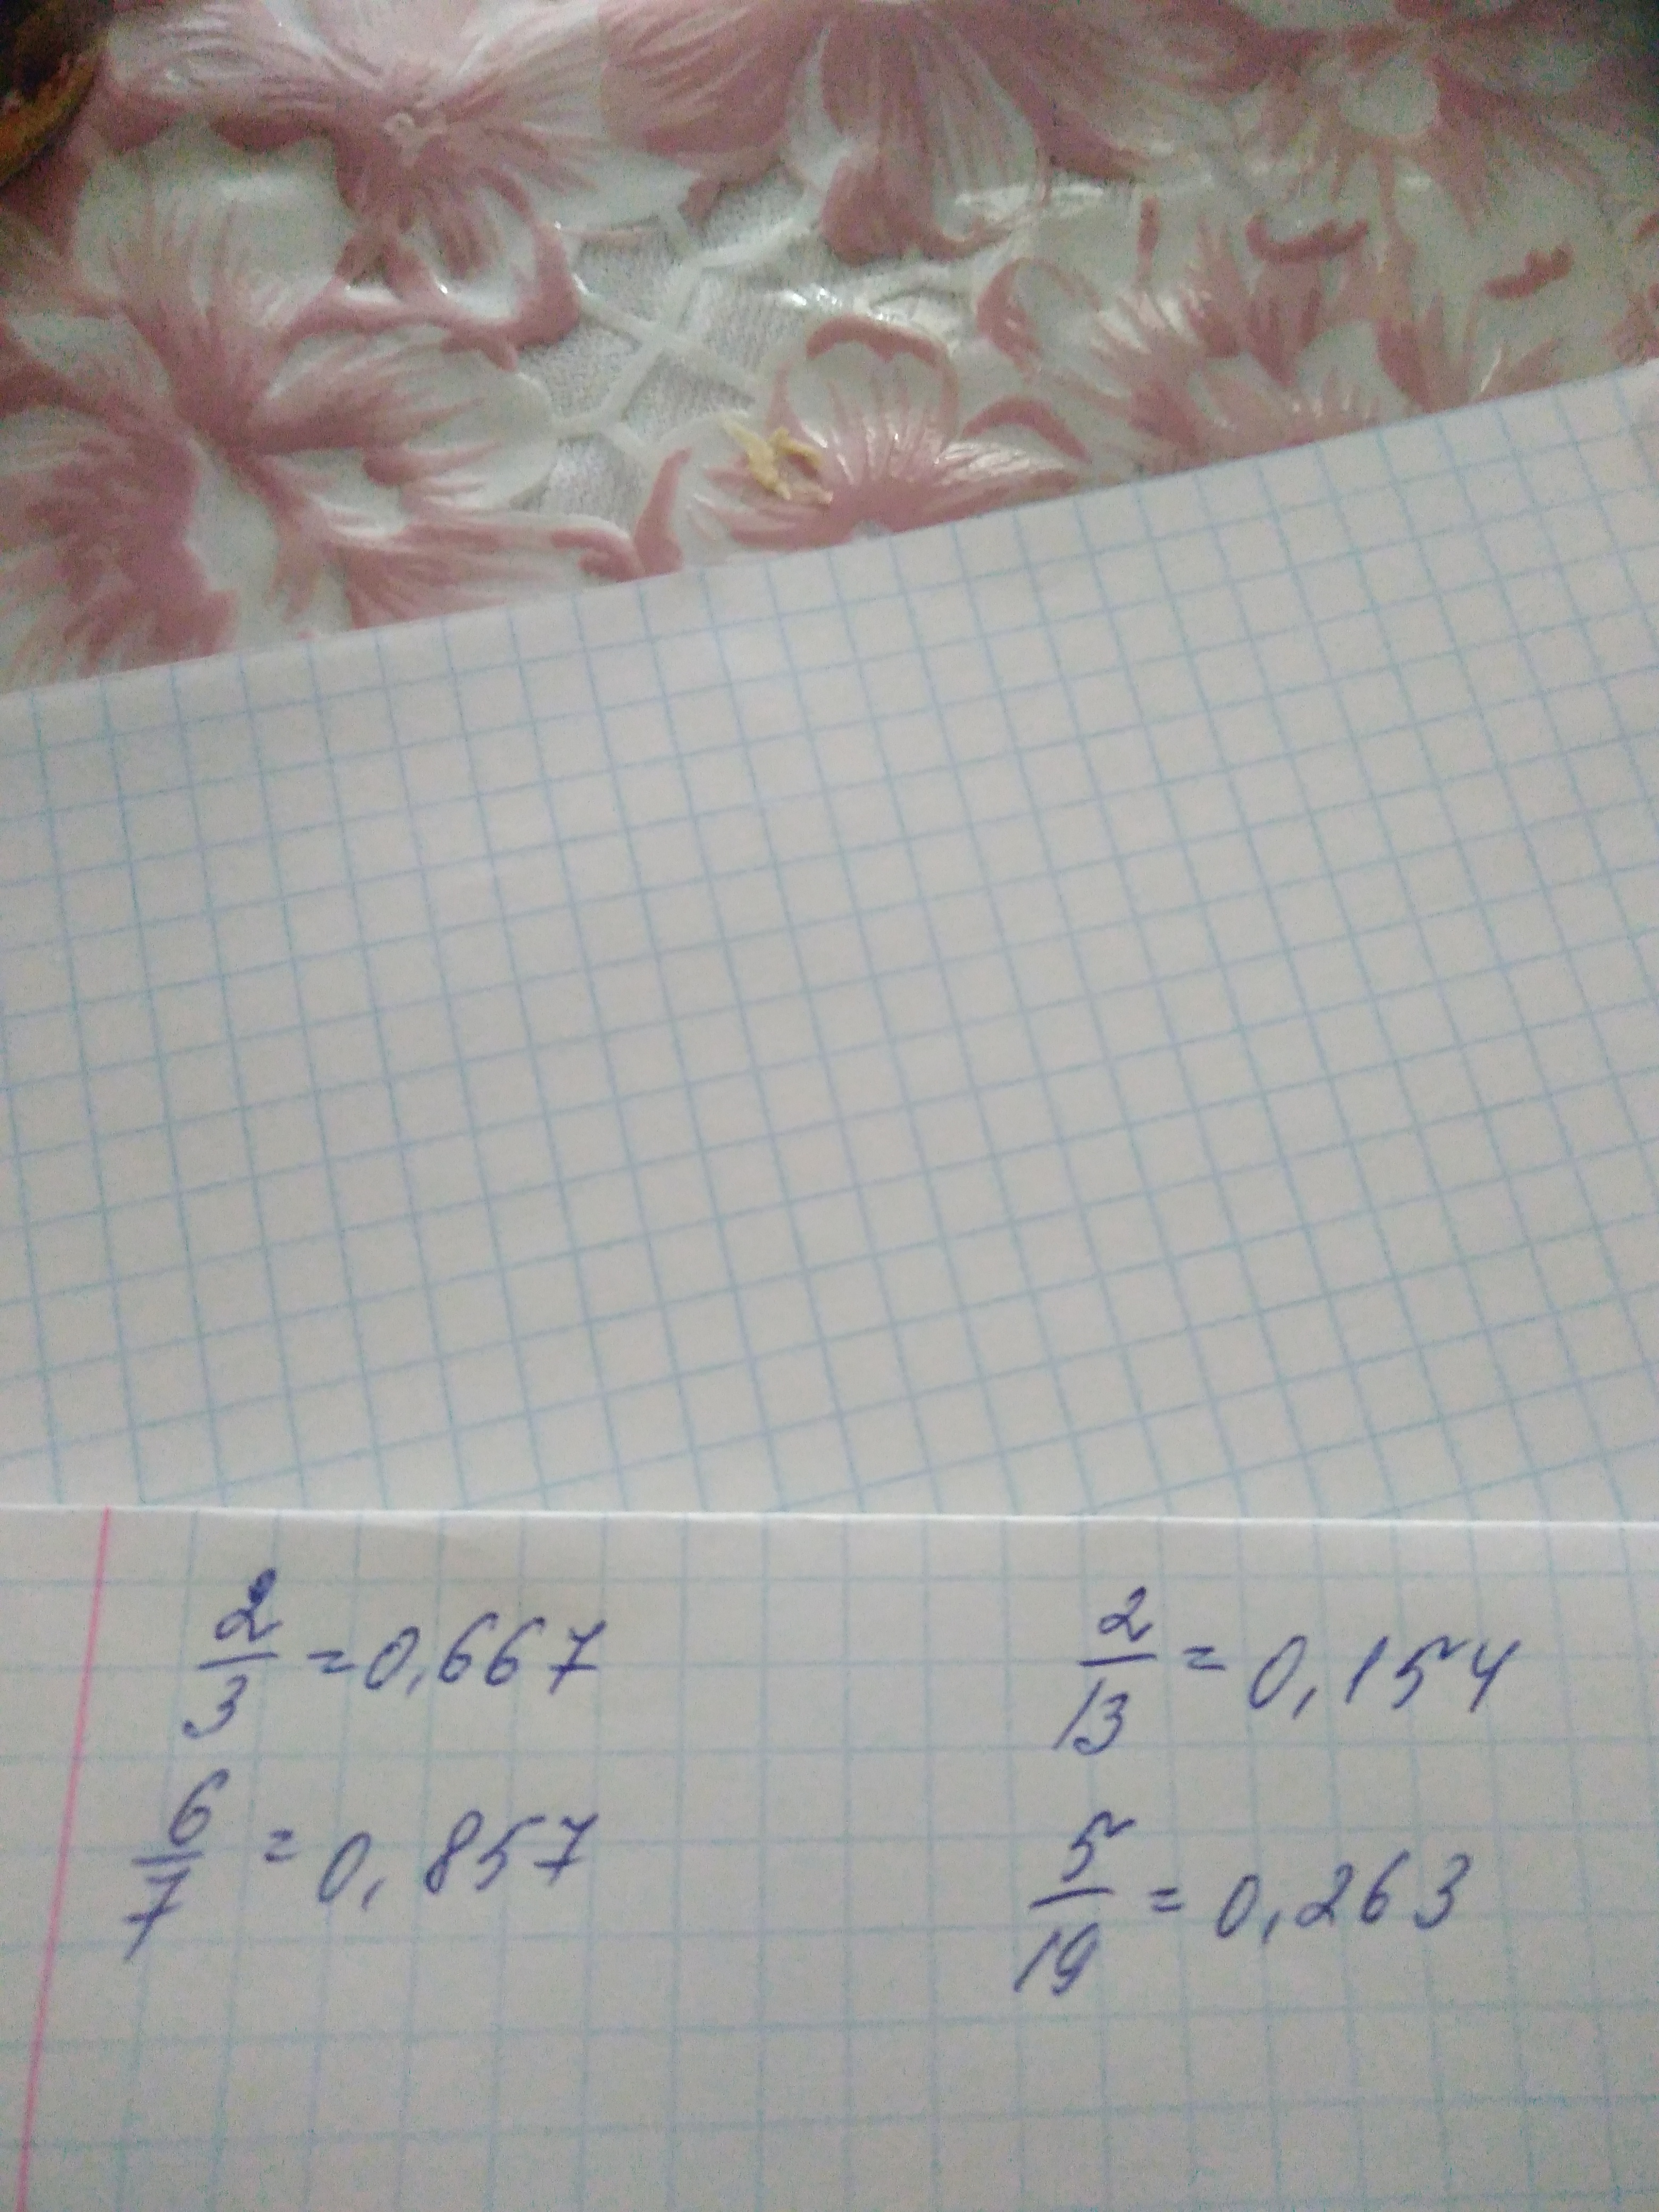 2/3 = 0,667
2/13 = 0,154
6/7 = 0,857
5/19 = 0,263